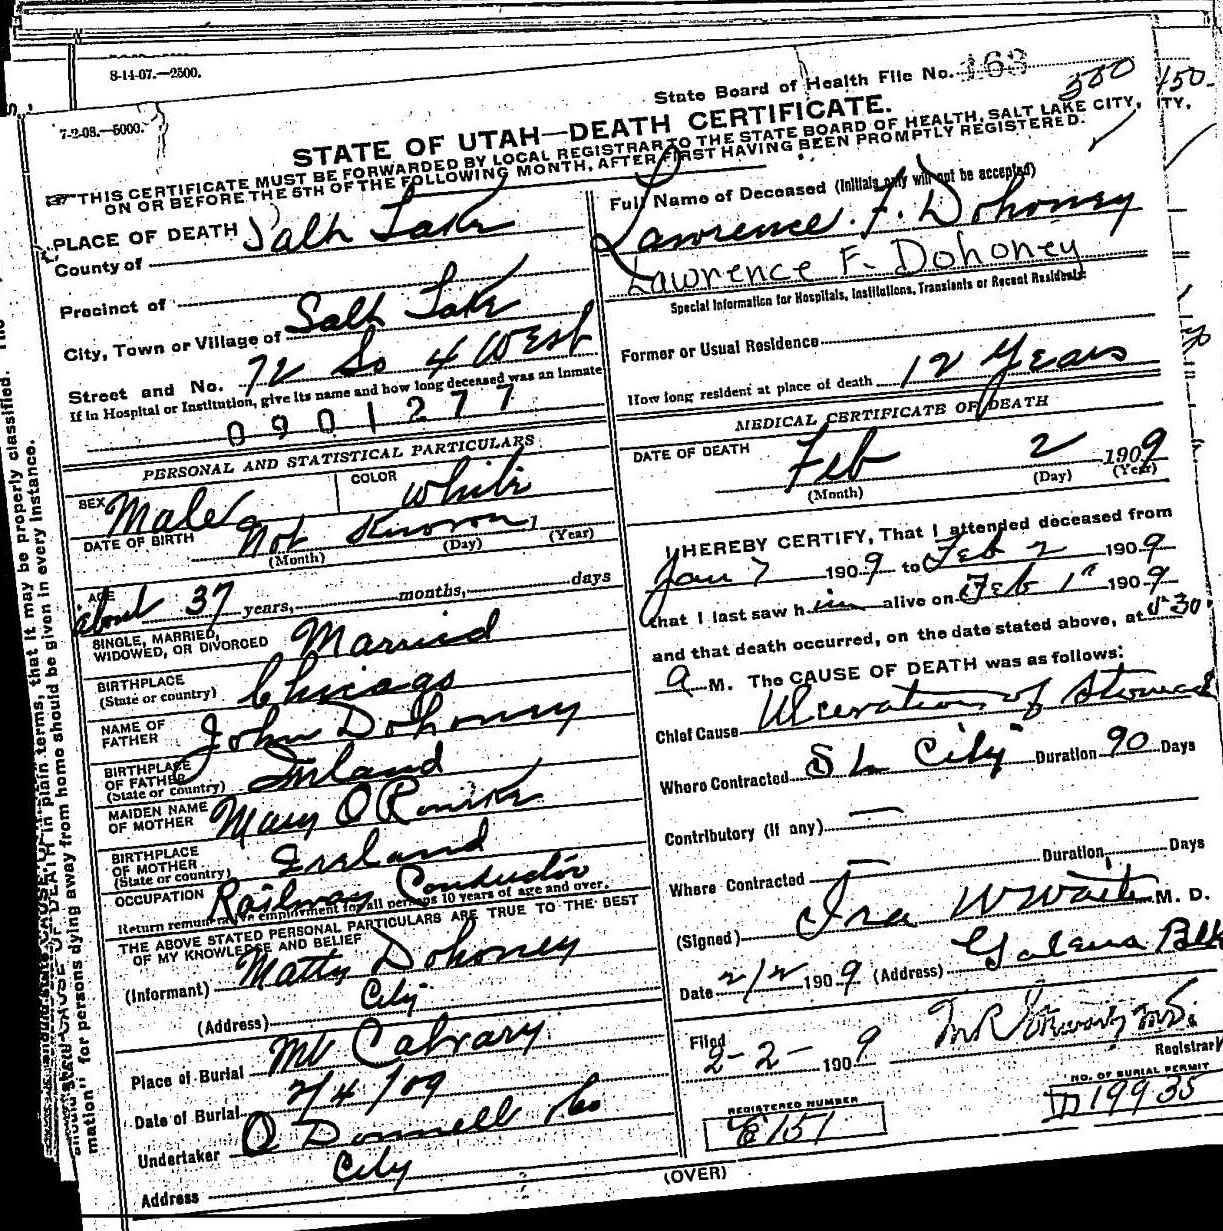 8-14-07.—2500.
7-2-08.—5000.
State Board of Health File No. 163
550
450.
STATE OF UTAH—DEATH CERTIFICATE.
THIS CERTIFICATE MUST BE FORWARDED BY LOCAL REGISTRAR TO THE STATE BOARD OF HEALTH, SALT LAKE CITY,
TY,
ON OR BEFORE THE 5TH OF THE FOLLOWING MONTH, AFTER FIRST HAVING BEEN PROMPTLY REGISTERED.
PLACE OF DEATH
County of Salt Lake
Precinct of
City, Town or Village of Salt Lake
Street and No. 72 So 4 West
If in Hospital or Institution, give its name and how long deceased was an inmate
0901277
PERSONAL AND STATISTICAL PARTICULARS
SEX Male
COLOR White
DATE OF BIRTH Not Known
(Month) (Day) (Year)
AGE about 37 years, months, days
SINGLE, MARRIED,
WIDOWED, OR DIVORCED Married
BIRTHPLACE
(State or country) Chicago
NAME OF
FATHER John Dohoney
BIRTHPLACE
OF FATHER
(State or country) Irland
MAIDEN NAME
OF MOTHER Mary O
BIRTHPLACE
OF MOTHER
(State or country) Irland
OCCUPATION Railway Conductor
Return remunerative employment for all persons 10 years of age and over.
THE ABOVE STATED PERSONAL PARTICULARS ARE TRUE TO THE BEST
OF MY KNOWLEDGE AND BELIEF
(Informant) Matty Dohoney
(Address) City
Place of Burial Mt Calvary
Date of Burial 2/4/09
Undertaker O Donnell & Co
Address City
Full Name of Deceased (Initials only will not be accepted)
Lawrence. F. Dohoney
Lawrence F. Dohoney
Special Information for Hospitals, Institutions, Transients or Recent Residents
Former or Usual Residence
How long resident at place of death 12 Years
MEDICAL CERTIFICATE OF DEATH
DATE OF DEATH Feb 2 1909
(Month) (Day) (Year)
I HEREBY CERTIFY, That I attended deceased from
Jan 7 1909 to Feb 2 1909
that I last saw him alive on Feb 1st 1909
and that death occurred, on the date stated above, at 530
a M. The CAUSE OF DEATH was as follows:
Chief Cause Ulceration of Stomach
Where Contracted S L City Duration 90 Days
Contributory (if any) —
Where Contracted — Duration Days
(Signed) Ira W Waite M. D.
Date 2/2 1909 (Address) Galena Blk
Filed 2-2- 1909 M.D.
Registrar
REGISTERED NUMBER
E 151
NO. OF BURIAL PERMIT
D 19935
(OVER)
mation" for persons dying away from home should be given in every instance.
in plain terms, that it may be properly classified. The